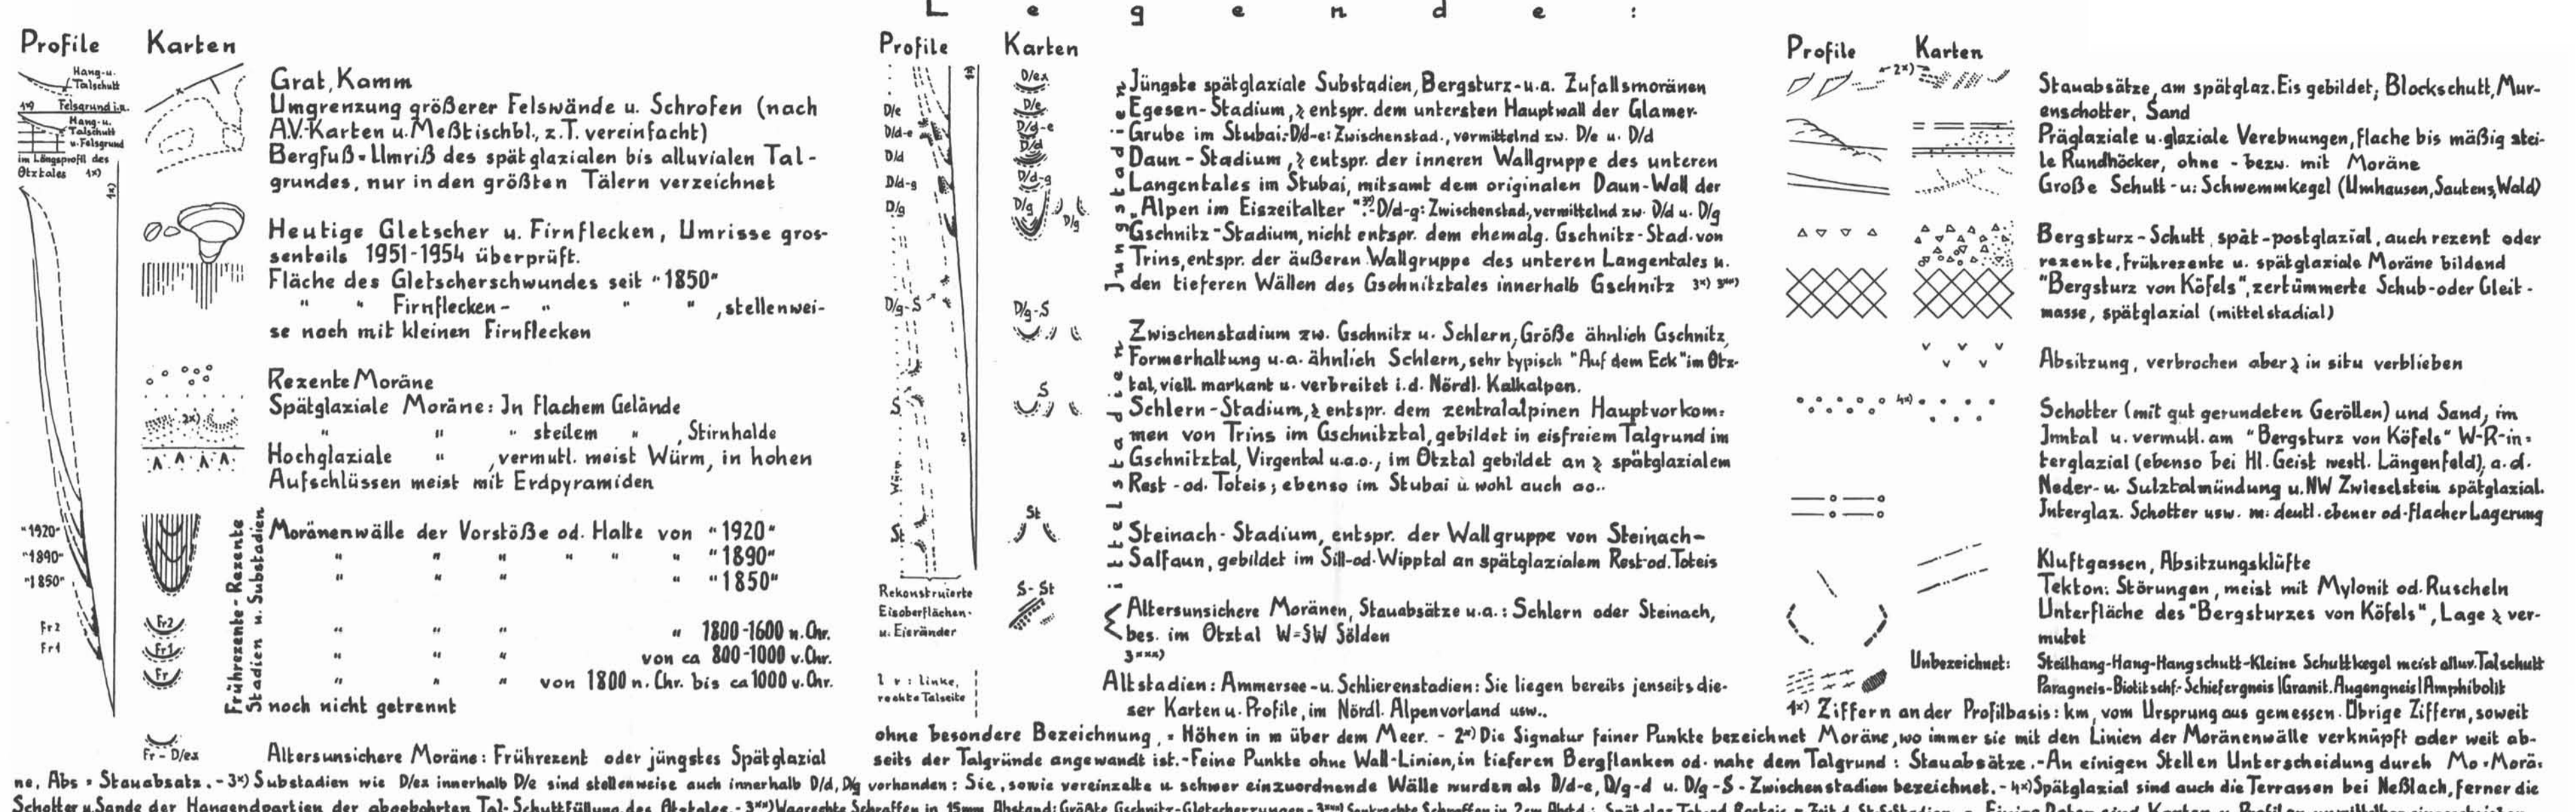 Legende:
Profile Karten
Hang-u.
Talschutt
Felsgrund i.a.
Hang-u.
Talschutt
u. Felsgrund
im Längsprofil des
Ötztales 1x)
1x)
Grat, Kamm
Umgrenzung größerer Felswände u. Schrofen (nach
A.V.-Karten u. Meßtischbl., z.T. vereinfacht)
Bergfuß = Umriß des spätglazialen bis alluvialen Tal-
grundes, nur in den größten Tälern verzeichnet
Heutige Gletscher u. Firnflecken, Umrisse gros-
senteils 1951-1954 überprüft.
Fläche des Gletscherschwundes seit "1850"
" " Firnflecken- " " " , stellenwei-
se noch mit kleinen Firnflecken
Rezente Moräne
Spätglaziale Moräne: In flachem Gelände
2x) " " " steilem " , Stirnhalde
Hochglaziale " , vermutl. meist Würm, in hohen
Aufschlüssen meist mit Erdpyramiden
Frührezente-Rezente
Stadien u. Substadien
"1920" Moränenwälle der Vorstöße od. Halte von "1920"
"1890" " " " " " " "1890"
"1850" " " " " "1850"
Fr2 Fr2 " " " " 1800-1600 n. Chr.
Fr1 Fr1 " " " von ca 800-1000 v. Chr.
Fr " " " von 1800 n. Chr. bis ca 1000 v. Chr.
noch nicht getrennt
Fr - D/ex Altersunsichere Moräne: Frührezent oder jüngstes Spätglazial
Profile Karten
1x)
D/ex
D/e D/e
D/d-e D/d-e
D/d D/d
D/d-g D/d-g
D/g D/g D/g
D/g-S D/g-S
S S
Würm
St St
Rekonstruierte
Eisoberflächen-
u. Eisränder
S-St
l r : linke,
rechte Talseite
Jungstadien
Jüngste spätglaziale Substadien, Bergsturz- u.a. Zufallsmoränen
Egesen-Stadium, entspr. dem untersten Hauptwall der Glamer-
Grube im Stubai; D/d-e: Zwischenstad., vermittelnd zw. D/e u. D/d
Daun-Stadium, entspr. der inneren Wallgruppe des unteren
Langentales im Stubai, mitsamt dem originalen Daun-Wall der
"Alpen im Eiszeitalter" D/d-g: Zwischenstad., vermittelnd zw. D/d u. D/g
Gschnitz-Stadium, nicht entspr. dem ehemalg. Gschnitz-Stad. von
Trins, entspr. der äußeren Wallgruppe des unteren Langentales u.
den tieferen Wällen des Gschnitztales innerhalb Gschnitz 3x) 3xx)
Mittelstadien
Zwischenstadium zw. Gschnitz u. Schlern, Größe ähnlich Gschnitz,
Formerhaltung u.a. ähnlich Schlern, sehr typisch "Auf dem Eck" im Ötz-
tal, viell. markant u. verbreitet i.d. Nördl. Kalkalpen.
Schlern-Stadium, entspr. dem zentralalpinen Hauptvorkom-
men von Trins im Gschnitztal, gebildet in eisfreiem Talgrund im
Gschnitztal, Virgental u.a.o., im Ötztal gebildet an spätglazialem
Rest- od. Toteis; ebenso im Stubai u wohl auch ao..
Steinach-Stadium, entspr. der Wallgruppe von Steinach-
Salfaun, gebildet im Sill- od. Wipptal an spätglazialem Rest- od. Toteis
Altersunsichere Moränen, Stauabsätze u.a.: Schlern oder Steinach,
bes. im Ötztal W-SW Sölden
3xxx)
Altstadien: Ammersee- u. Schlierenstadien: Sie liegen bereits jenseits die-
ser Karten u. Profile, im Nördl. Alpenvorland usw..
Profile Karten
2x)
Stauabsätze, am spätglaz. Eis gebildet; Blockschutt, Mur-
enschotter, Sand
Präglaziale u. glaziale Verebnungen, flache bis mäßig stei-
le Rundhöcker, ohne - bezw. mit Moräne
Große Schutt- u. Schwemmkegel (Umhausen, Sautens, Wald)
Bergsturz-Schutt, spät-postglazial, auch rezent oder
rezente, frührezente u. spätglaziale Moräne bildend
"Bergsturz von Köfels", zertümmerte Schub- oder Gleit-
masse, spätglazial (mittelstadial)
Absitzung, verbrochen aber in situ verblieben
4x) Schotter (mit gut gerundeten Geröllen) und Sand, im
Inntal u. vermutl. am "Bergsturz von Köfels" W-R-in-
terglazial (ebenso bei Hl. Geist westl. Längenfeld), a. d.
Neder- u. Sulztalmündung u. NW Zwieselstein spätglazial.
Interglaz. Schotter usw. m. deutl. ebener od. flacher Lagerung
Kluftgassen, Absitzungsklüfte
Tekton. Störungen, meist mit Mylonit od. Ruscheln
Unterfläche des "Bergsturzes von Köfels", Lage ver-
mutet
Unbezeichnet: Steilhang-Hang-Hangschutt-Kleine Schuttkegel meist alluv. Talschutt
Paragneis-Biotitschf.-Schiefergneis | Granit. Augengneis | Amphibolit
1x) Ziffern an der Profilbasis: km, vom Ursprung aus gemessen. Übrige Ziffern, soweit
ohne besondere Bezeichnung, = Höhen in m über dem Meer. - 2x) Die Signatur feiner Punkte bezeichnet Moräne, wo immer sie mit den Linien der Moränenwälle verknüpft oder weit ab-
seits der Talgründe angewandt ist. - Feine Punkte ohne Wall-Linien, in tieferen Bergflanken od. nahe dem Talgrund: Stauabsätze. - An einigen Stellen Unterscheidung durch Mo = Morä-
ne, Abs = Stauabsatz. - 3x) Substadien wie D/ex innerhalb D/e sind stellenweise auch innerhalb D/d, D/g vorhanden: Sie, sowie vereinzelte u. schwer einzuordnende Wälle wurden als D/d-e, D/g-d u. D/g-S - Zwischenstadien bezeichnet. - 4x) Spätglazial sind auch die Terrassen bei Neßlach, ferner die
Schotter u. Sande der Hangendpartien der abgebohrten Tal-Schuttfüllung des Ötztales. - 3xx) Waagrechte Schraffen in 15mm Abstand: Größte Gschnitz-Gletscherzungen - 3xxx) Senkrechte Schraffen in 2cm